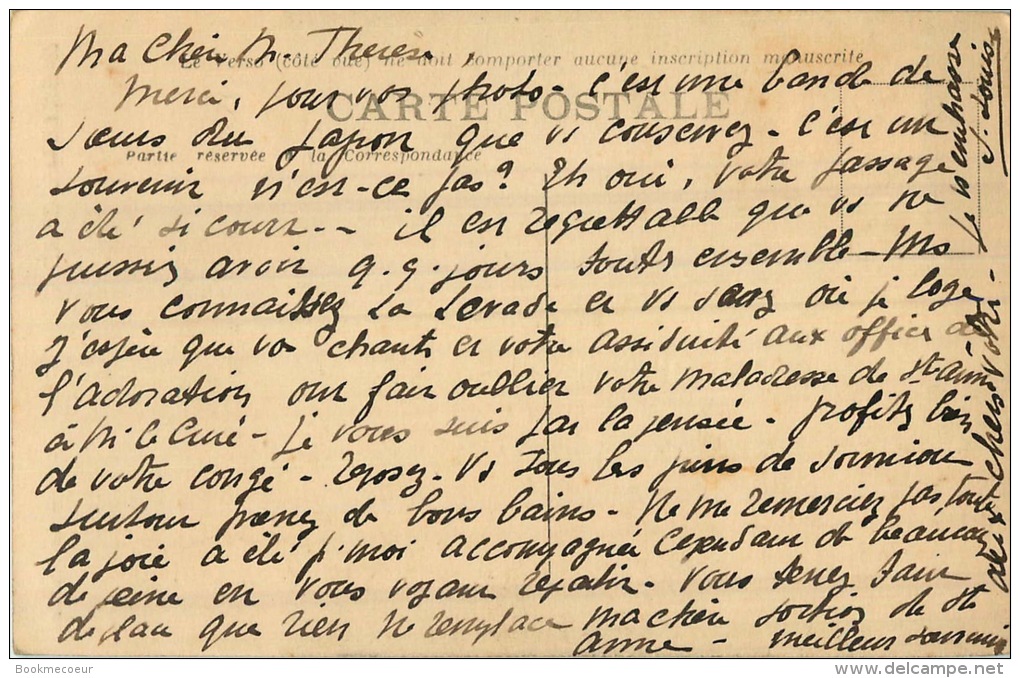 Ma chère M. Therese
Le Verso (côté vue) ne doit comporter aucune inscription manuscrite
Merci, pour vos photos. C'est une bande de
CARTE POSTALE
soeurs du Japon que vs conservez. C'est un
Partie réservée à la Correspondance
souvenir n'est-ce pas? Eh oui, votre passage
a été si court -- il est regrettable que vs ne
puissiez avoir q.q. jours toutes ensemble - Mais
vous connaissez La Levade et vs savez où je loge
J'espère que vos chants et votre assiduité aux offices de
l'adoration ont fait oublier votre maladresse de Ste Anne
à Mr le Curé - je vous suis par la pensée. profitez bien
de votre congé - reposez-vs sous les pins de Sormiou
surtout prenez de bons bains - Ne me remerciez pas, toute
la joie a été pr moi accompagnée cependant de beaucoup
de peine en vous voyant repartir. Vous tenez tant
de place que rien ne remplace ma chère
Anne - meilleur souvenir
aux chers votres - je vs embrasse
Bookmecoeur
delcampe.net